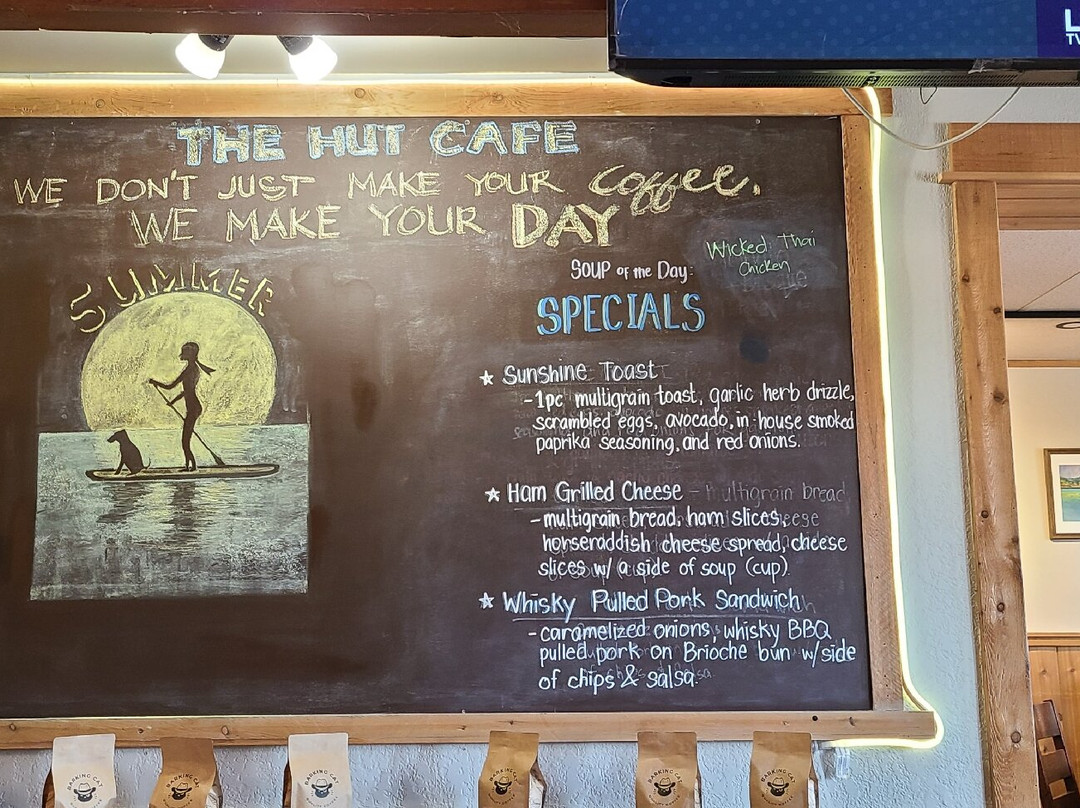 L
TV
THE HUT CAFE
WE DON'T JUST MAKE YOUR Coffee.
WE MAKE YOUR DAY
SUMMER
SOUP of the Day:
Wicked Thai
Chicken
SPECIALS
★ Sunshine Toast
-1pc multigrain toast, garlic herb drizzle,
scrambled eggs, avocado, in house smoked
paprika seasoning, and red onions.
★ Ham Grilled Cheese - multigrain bread
-multigrain bread, ham slices,
horseraddish cheese spread, cheese
slices w/ a side of soup (cup).
★ Whisky Pulled Pork Sandwich
-caramelized onions, whisky BBQ
pulled pork on Brioche bun w/side
of chips & salsa.
BARKING CAT
BARKING CAT
BARKING CAT
BARKING CAT
BARKING CAT
BARKING CAT